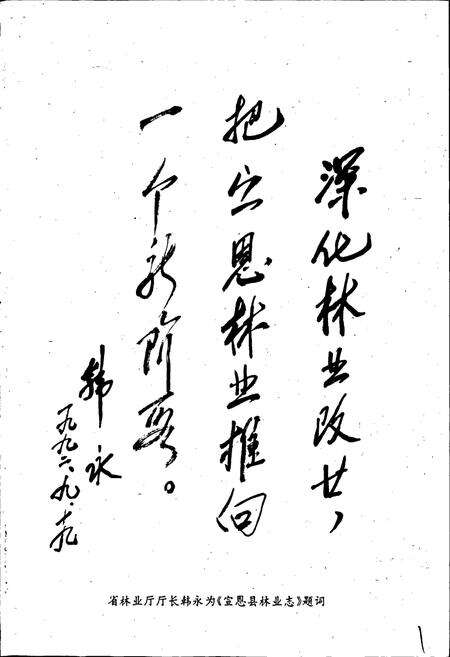 深化林业改革，
把宣恩林业推向
一个新阶段。
韩永
一九九六.九.十九
省林业厅厅长韩永为《宣恩县林业志》题词
1